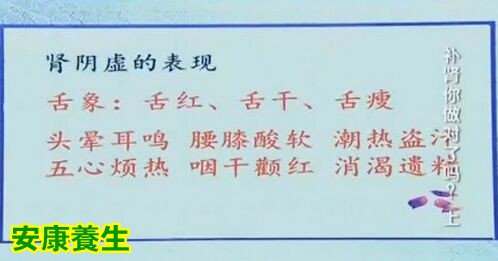 肾阴虚的表现
舌象：舌红、舌干、舌瘦
头晕耳鸣 腰膝酸软 潮热盗汗
五心烦热 咽干颧红 消渴遗精
补肾你做对了吗？上
安康養生